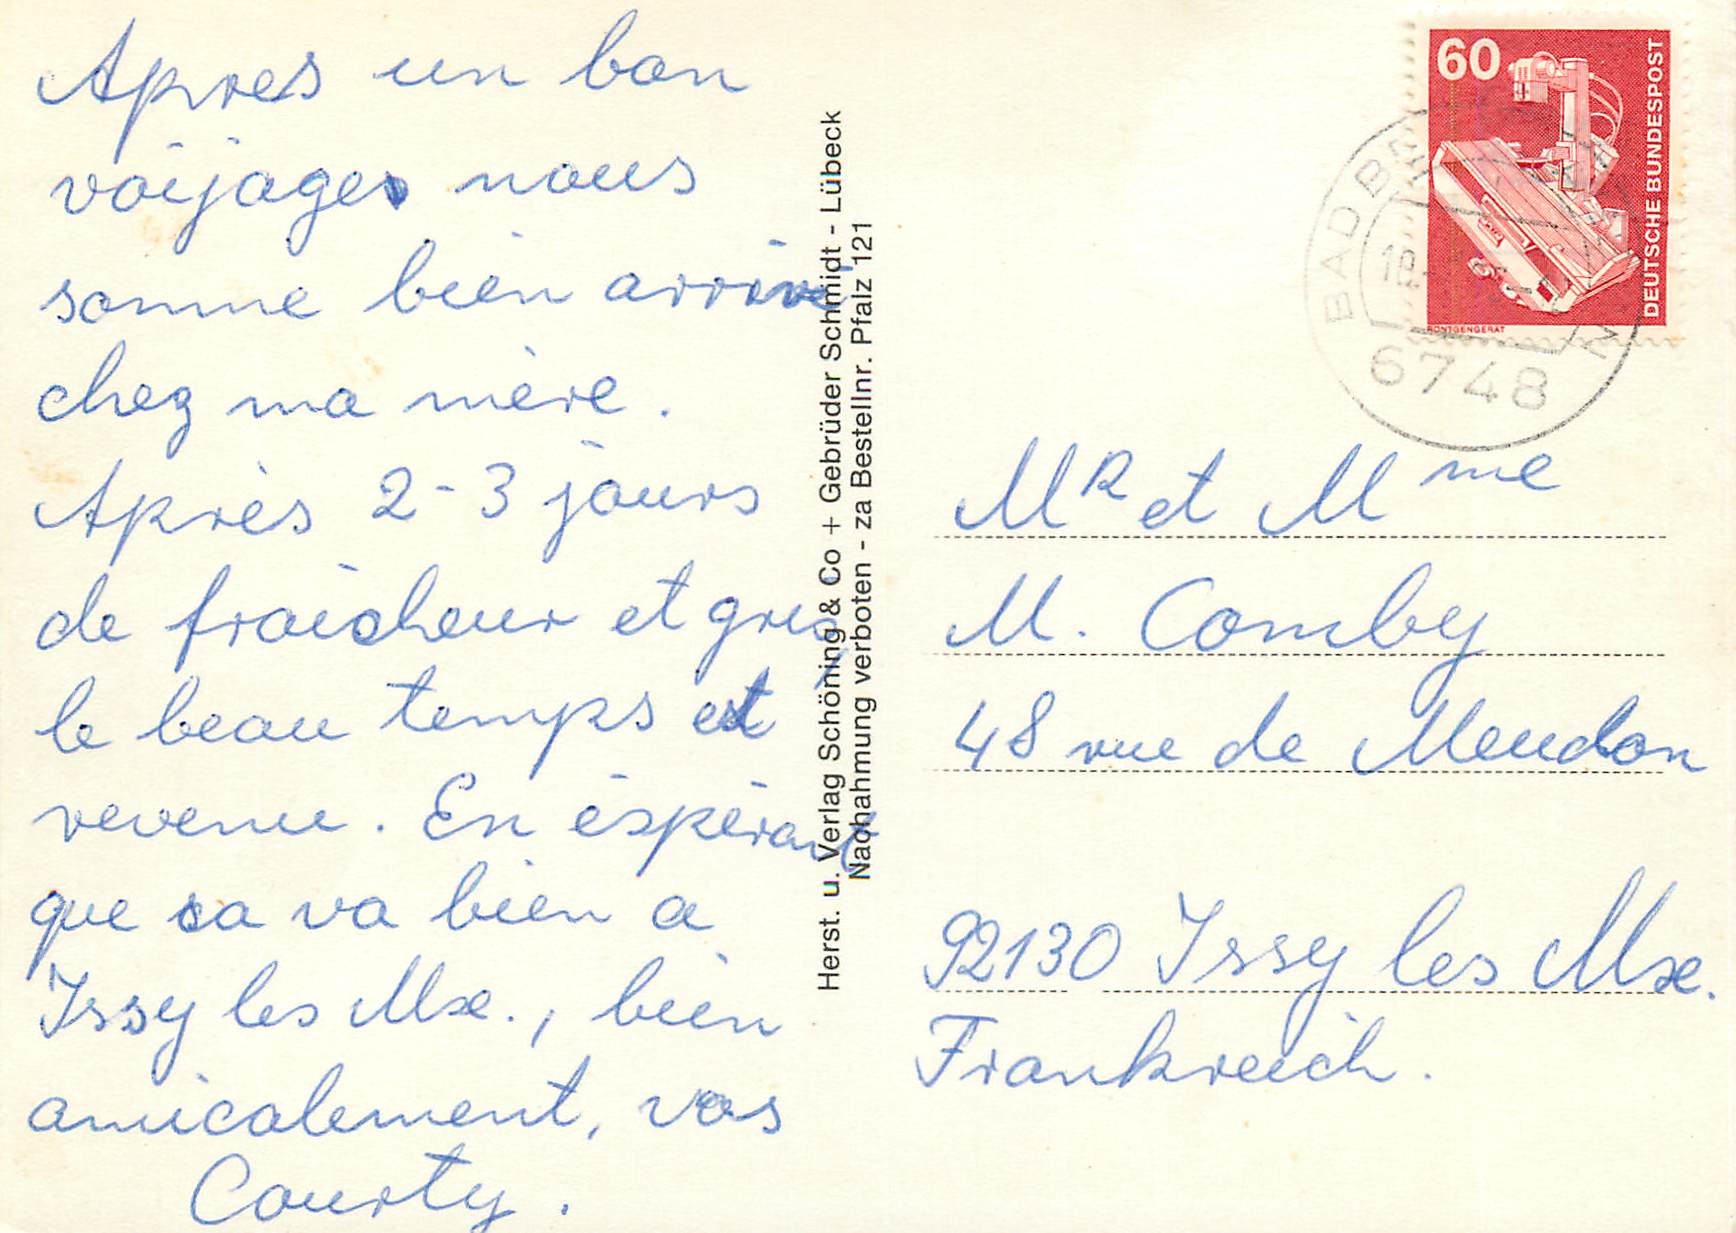 Apres un bon
voijages nous
somme bien arrivé
chez ma mère.
Après 2-3 jours
de fraicheur et gris,
le beau temps est
revenue. En éspérant
que sa va bien a
Issy les Mx., bien
amicalement, vos
Courty.
Herst. u. Verlag Schöning & Co + Gebrüder Schmidt - Lübeck
Nachahmung verboten - za Bestellnr. Pfalz 121
60
DEUTSCHE BUNDESPOST
RÖNTGENGERÄT
BAD
6748
MR et Mme
M. Comby
48 rue de Meudon
92130 Issy les Mx.
Frankreich.